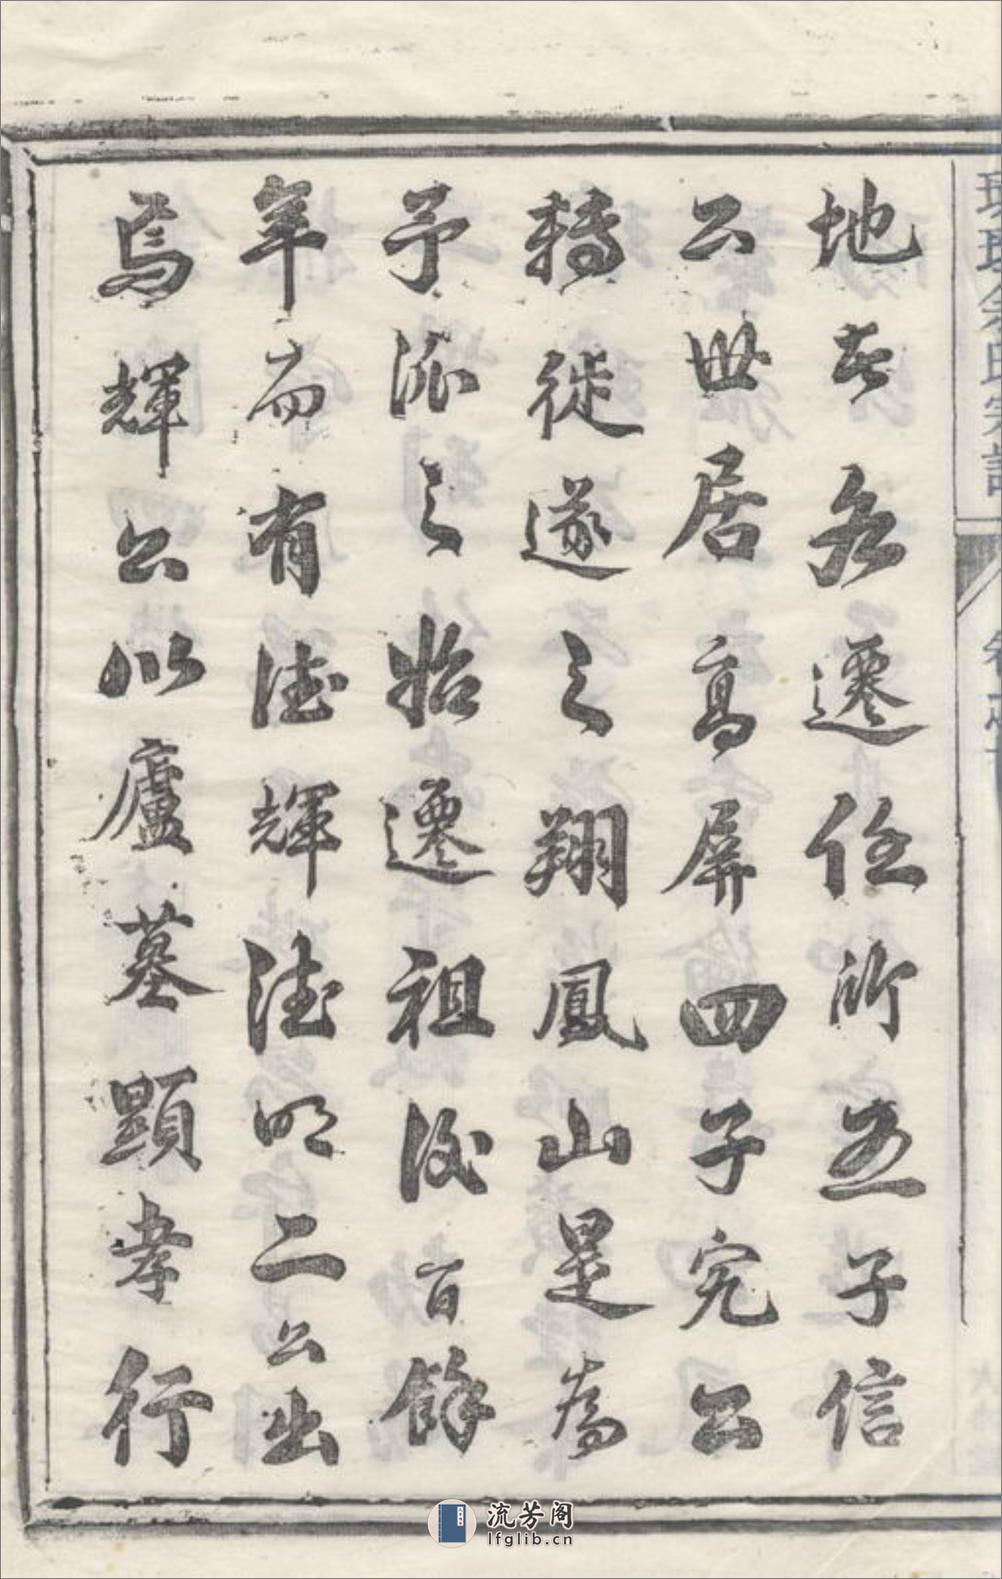 地者另遷任所五子信
公世居高屏四子完公
轉徙遂之翔鳳山是為
予派之始遷祖後百餘
年而有德輝德明二公出
焉輝公以廬墓顯孝行
流芳阁
lfglib.cn